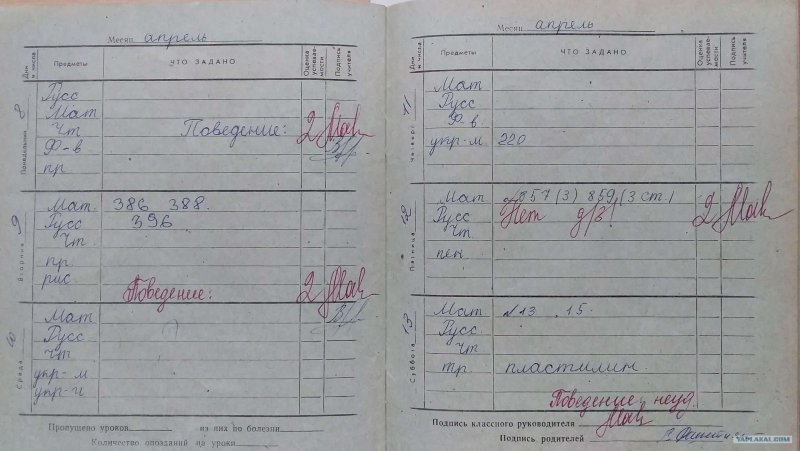 Месяц апрель
Дни и числа Предметы ЧТО ЗАДАНО Оценка успеваемости Подпись учителя
Понедельник 8
Русс
Мат
Чт Поведение: 2
Ф-в
пр
Вторник 9
Мат. 386 388.
Русс 396
Чт
пр.
рис.
Поведение: 2
Среда
Мат
Русс
Чт
укр-м
укр-ч
Пропущено уроков из них по болезни
Количество опозданий на уроки
Месяц апрель
Дни и числа Предметы ЧТО ЗАДАНО Оценка успеваемости Подпись учителя
Четверг 11
Мат
Русс
Ф-в
укр-м. 220
Пятница 12
Мат 857 (3) 859 (3 ст.)
Русс Нет д/з! 2
Чт
пен.
Суббота 13
Мат №13 .15.
Русс.
Чт
тр. пластилин.
Поведение неуд.
Подпись классного руководителя
Подпись родителей
YAPLAKAL.COM